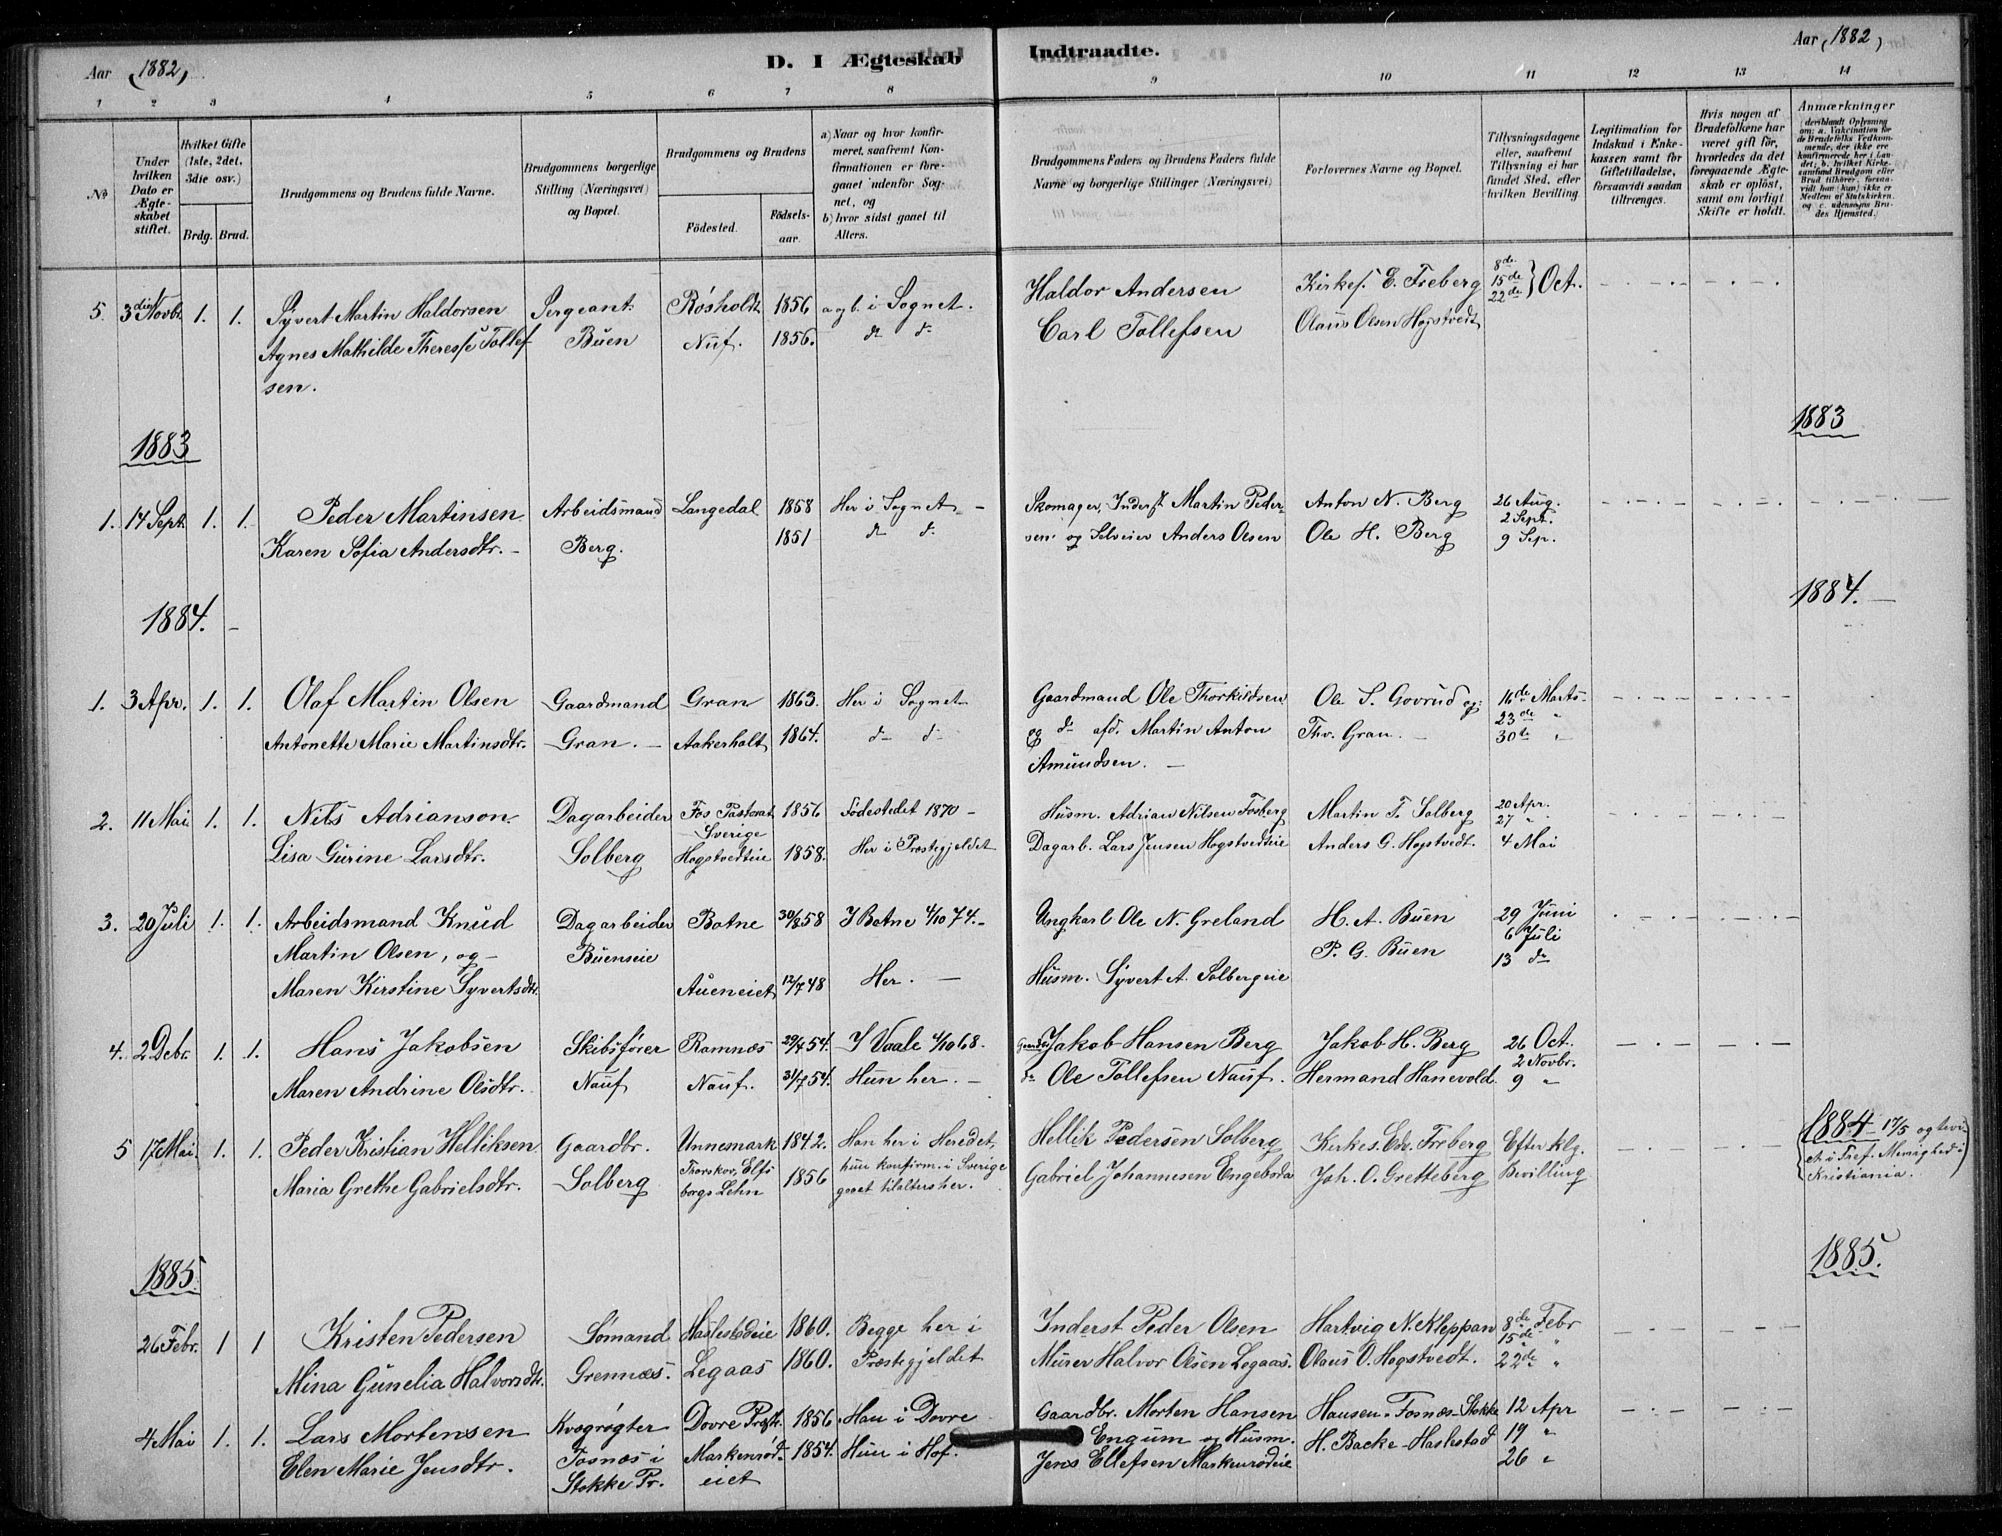 Aar (1882)
D. I Ægteskab Indtraadte.
Aar (1882)
1 2 3 4 5 6 7 8 9 10 11 12 13 14
No
Under hvilken Dato er Ægteskabet stiftet.
Hvilket Gifte (1ste, 2det, 3die osv.)
Brdg. Brud.
Brudgommens og Brudens fulde Navne.
Brudgommens borgerlige Stilling (Næringsvei) og Bopæl.
Brudgommens og Brudens
Fødested. Fødselsaar.
a) Naar og hvor konfirmeret, saafremt Konfirmationen er foregaaet udenfor Sognet, og
b) hvor sidst gaaet til Alters.
Brudgommens Faders og Brudens Faders fulde Navne og borgerlige Stillinger (Næringsvei)
Forlovernes Navne og Bopæl.
Tillysningsdagene eller, saafremt Tillysning ei har fundet Sted, efter hvilken Bevilling
Legitimation for Indskud i Enkekassen samt for Giftetilladelse, forsaavidt saadan tiltrænges.
Hvis nogen af Brudefolkene har været gift før, hvorledes da det foregaaende Ægteskab er opløst, samt om lovligt Skifte er holdt.
Anmærkninger
(deriblandt Oplysning om: a. Vakcination for de Brudefolks Vedkommende, der ikke ere konfirmerede her i Landet; b. hvilket Kirkesamfund Brudgom eller Brud tilhører, forsaavidt han (hun) ikke er Medlem af Statskirken. og c. udensogns Brudes Hjemsted.)
5. 3die Novbr 1. 1. Syvert Martin Haldorsen Sergeant Røsholdt 1856 a og b. i Sognet. Haldor Andersen Kirkes. E. Freberg 8de 15de 22de } Oct.
Agnes Mathilde Therese Tollef Buen Nuf. 1856. do do Carl Tollefsen Olaus Olsen Hogstvedt
sen.
1883 1883
1. 14 Sept. 1. 1. Peder Martinsen Arbeidsmand Langedal 1858 Her i Sognet Skomager, Inderst Martin Peder- Anton N. Berg 26 Aug.
2 Sept.
Karen Sofia Andersdtr. Berg. 1851 do do sen og Selveier Anders Olsen Ole H. Berg 9 Sep.
1884. 1884.
1. 3 Apr. 1. 1. Olaf Martin Olsen Gaardmand Gran 1863. Her i Sognet Gaardmand Ole Thorkildsen Ole S. Govrud og 16de Marts
23de "
Antonette Marie Martinsdtr. Gran. Aakerholt 1864. do do og do afd. Martin Anton Thv. Gran. 30te "
Amundsen.
2. 11 Mai 1. 1. Nils Adrianson Dagarbeider Fos Pastorat 1856 Fødestedet 1870 Husm. Adrian Nilsen Fosberg Martin F. Solberg 20 Apr.
Sverige 27 "
Lisa Gurine Larsdtr. Solberg Hogstvedteie 1858. Her i Præstegjeldet Dagarb. Lars Jensen Hogstvedteie Anders G. Hogstvedt. 4 Mai
3. 20 Juli 1. 1. Arbeidsmand Knud Dagarbeider Botne 30/8 58 I Botne 4/10 74. Ungkarl Ole N. Greland H. A. Buen 29 Juni
Martin Olsen, og Buenseie P. G. Buen 6 Juli
13 do
Maren Kirstine Syvertsdtr. Aueneiet 12/7 48 Her. Husm. Syvert A. Solbergeie
4. 2 Debr. 1. 1. Hans Jakobsen Skibsfører Ramnæs 29/7 54. I Vaale 4/10 68. Gaardbr Jakob Hansen Berg Jakob H. Berg 26 Oct.
2 Novbr.
Maren Andrine Olsdtr. Nauf Nauf. 31/7 54. Hun her. do Ole Tollefsen Nauf. Hermand Hanevold. 9 "
5 17 Mai. 1. 1. Peder Kristian Helliksen Gaardbr. Unnemark 1842. Han her i Heredet, Hellik Pedersen Solberg Kirkes. Ese. Freberg Efter klg. 1884 17/5 og tvi-
hun konfirm. i Sverige et i Fref. Menighed i
Maria Grethe Gabrielsdtr. Solberg Thorskov, Elfsborgs Lehn 1856 gaaet tilalters her. Gabriel Johannesen Engebsda Joh. O. Gretteberg Bevilling Kristiania.
1885. 1885.
26 Febr. 1 1 Kristen Pedersen Sømand Haslestadeie 1860. Begge her i Inderst Peder Olsen Hartvig N. Kleppan 8de Febr
15de "
Mina Gunelia Halvorsdtr. Grennæs. Legaas 1860. Præstegjeldet Murer Halvor Olsen Legaas. Olaus O. Hogstvedt. 22de "
4 Mai 1. 1. Lars Mortensen Kvægrøgter Dovre Præst. 1856 Han i Dovre Gaardbr. Morten Hansen Hansen Fosnæs Stokke 12 Apr
Elen Marie Jensdtr. Fosnæs i Markenrød- 1854. Hun i Hof. Engum og Husm. H. Backe Haslestad 19 "
Stokke Pr. eiet Jens Ellefsen Markenrødeie 26 "